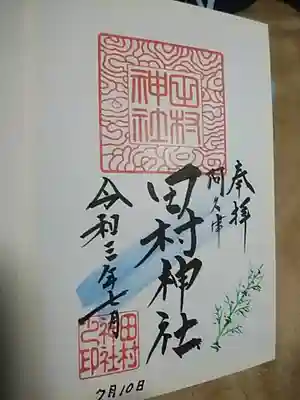 奉拝
阿久津
田村神社
田村神社
令和三年七月
田村神社之印
7月10日